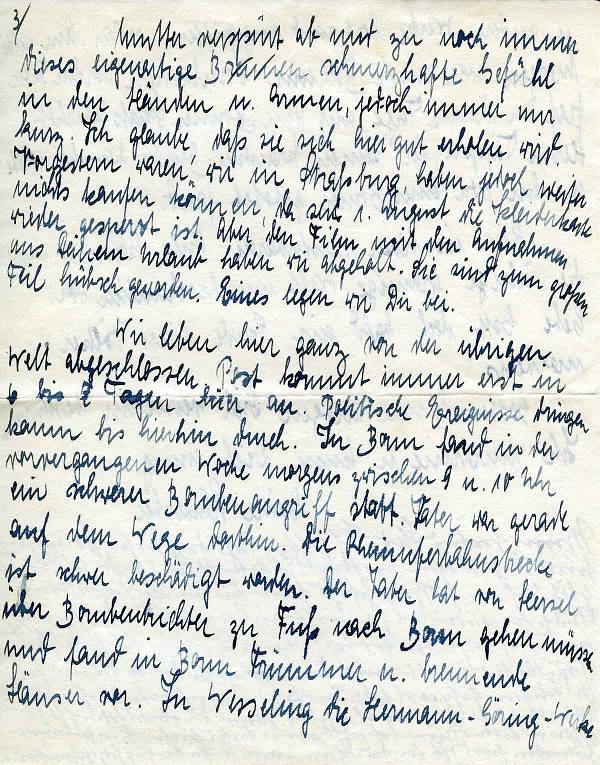 3/
Mutter verspürt ab und zu noch immer
dieses eigenartige schmerzhafte Gefühl
in den Händen u. Armen, jedoch immer nur
kurz. Ich glaube, daß sie sich hier gut erholen wird.
Vorgestern waren wir in Straßburg, haben jedoch weiter
nichts kaufen können, da seit 1. August die Kleiderkarte
wieder gesperrt ist. Aber den Film mit den Aufnahmen
aus Deinem Urlaub haben wir abgeholt. Sie sind zum großen
Teil hübsch geworden. Eines legen wir Dir bei.
Wir leben hier ganz von der übrigen
Welt abgeschlossen. Post kommt immer erst in
6 bis 8 Tagen hier an. Politische Ereignisse dringen
kaum bis hierhin durch. In Bonn fand in der
vorvergangenen Woche morgens zwischen 9 u. 10 Uhr
ein schwerer Bombenangriff statt. Vater war gerade
auf dem Wege dorthin. Die Rheinuferbahnstrecke
ist schwer beschädigt worden. Der Vater hat von Hersel
über Bombentrichter zu Fuß nach Bonn gehen müssen
und fand in Bonn Trümmer u. brennende
Häuser vor. In Wesseling die Hermann-Göring-Werke